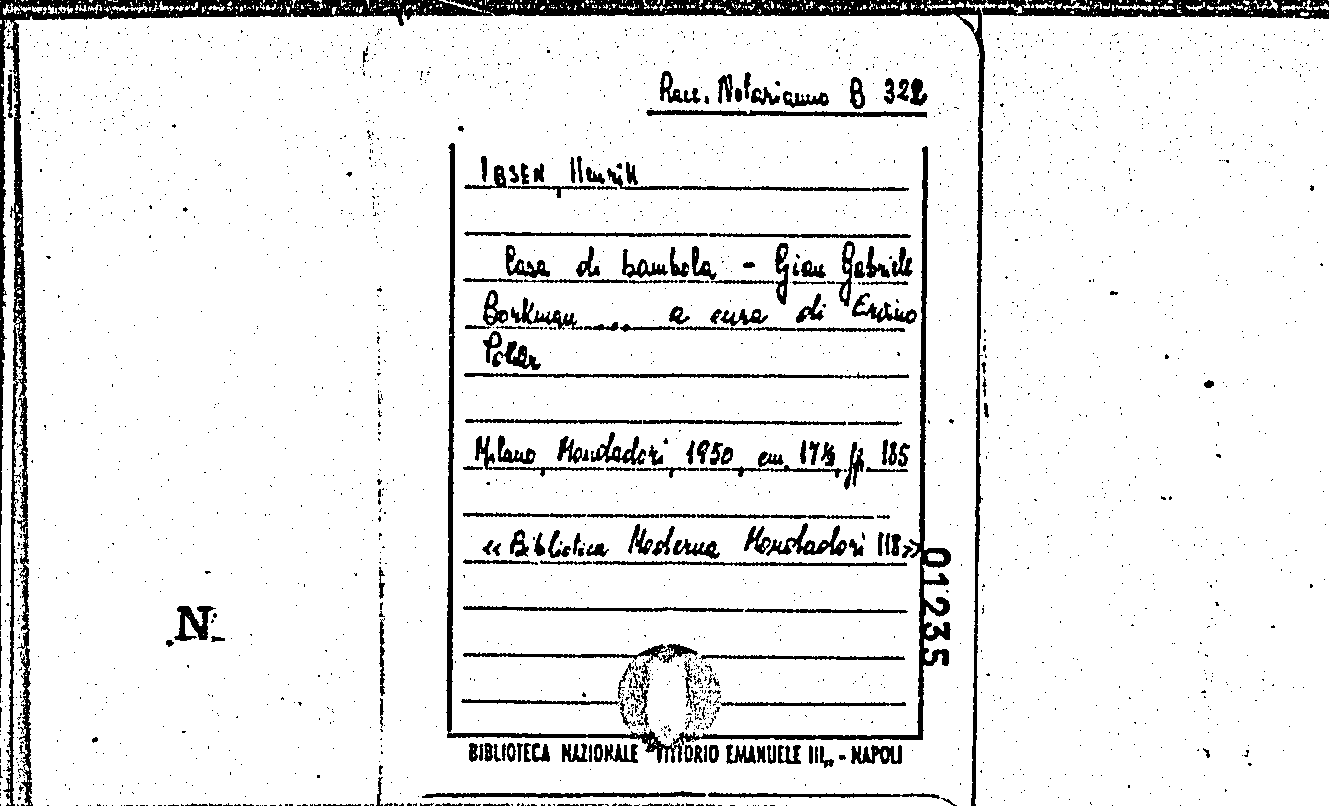 Racc. Notarianno B 322
IBSEN, Henrik
Casa di bambola - Gian Gabriele
Borkman .... a cura di Ervino
Pocar
Milano, Mondadori, 1950, cm. 17½, pp. 185
« Biblioteca Moderna Mondadori 118»
01235
N.
BIBLIOTECA NAZIONALE "VITTORIO EMANUELE III„ - NAPOLI